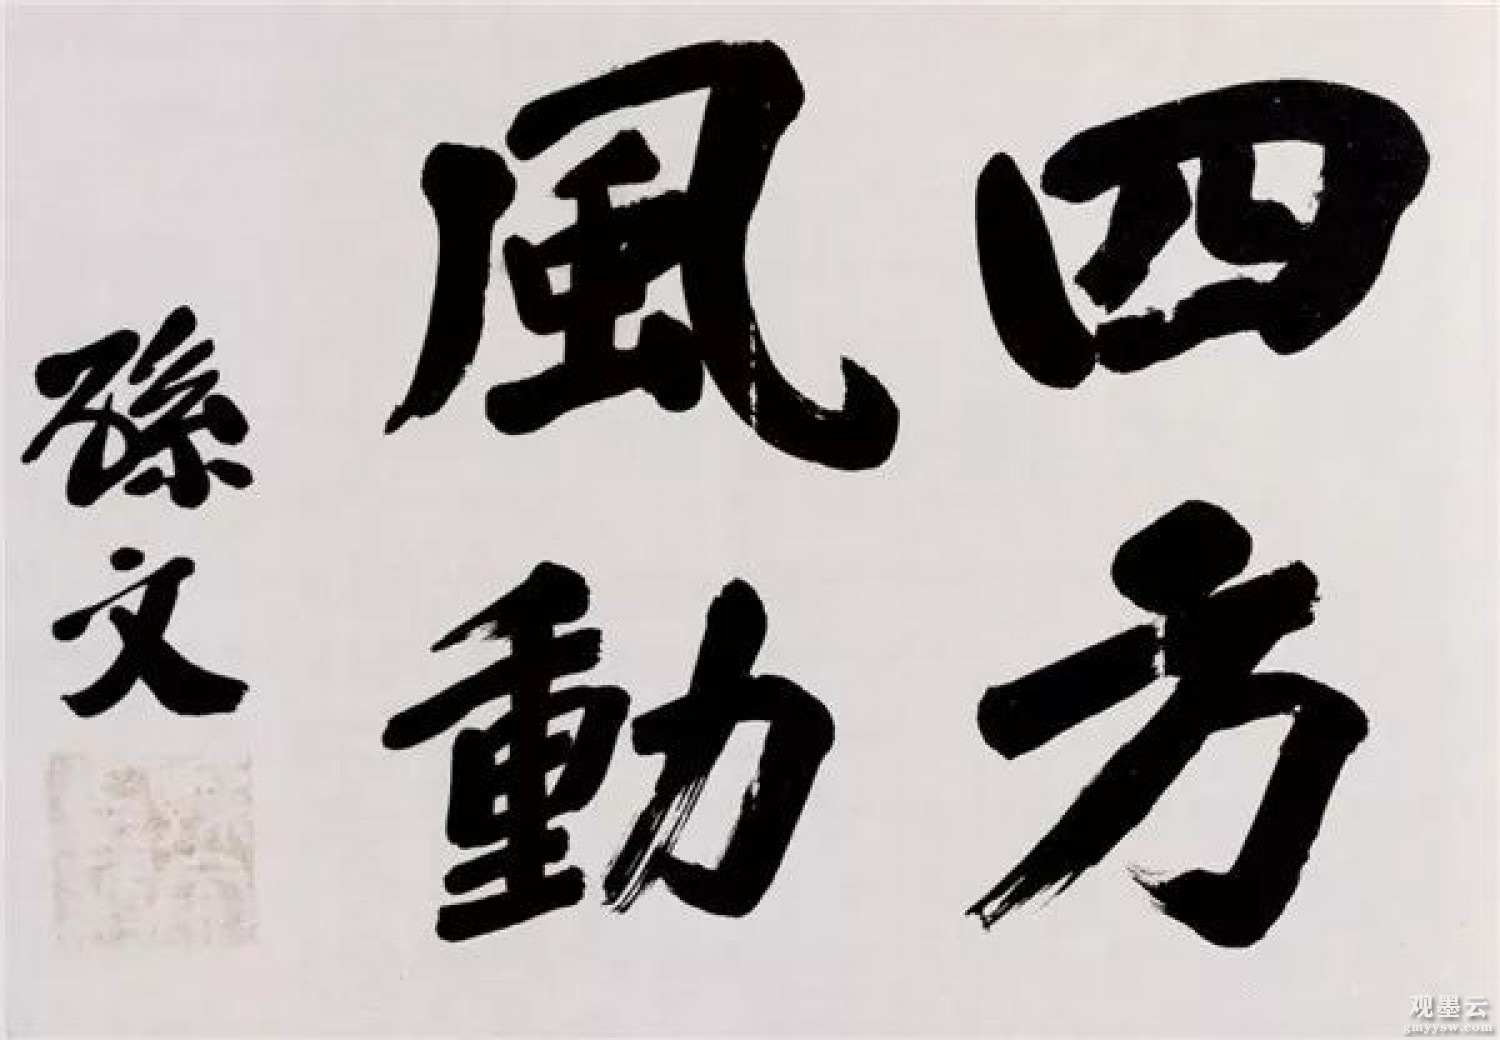 四方
風動
孫文
观墨云
gmyysw.com